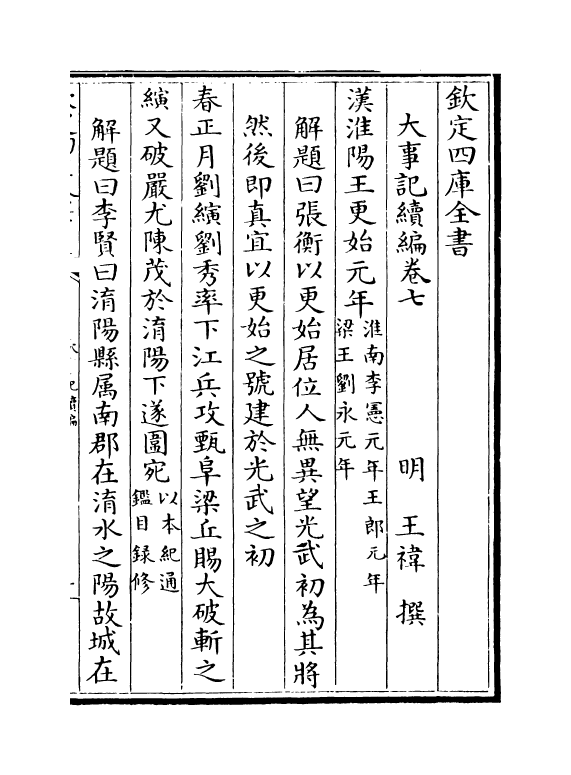 欽定四庫全書
大事記續編卷七
明 王禕 撰
漢淮陽王更始元年淮南李憲元年王郎元年
梁王劉永元年
解題曰張衡以更始居位人無異望光武初為其將
然後即真宜以更始之號建於光武之初
春正月劉縯劉秀率下江兵攻甄阜梁丘賜大破斬之
縯又破嚴尤陳茂於淯陽下遂圍宛以本紀通
鑑目錄修
解題曰李賢曰淯陽縣属南郡在淯水之陽故城在